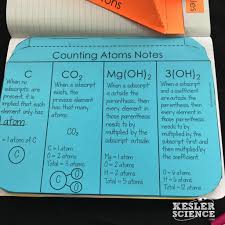 Counting Atoms Notes
C
When no
subscripts are
present, it is
implied that each
element only
has
atom
= 1 atom of C
C
CO2
When a subscript
exists, the
previous element
has that many
atoms.
CO2
C = 1 atom
O = 2 atoms
Total = 3 atoms
C
O
O
Mg(OH)2
When a subscript
is outside the
parenthesis, then
every element in
those parenthesis
needs to be
multiplied by the
subscript outside.
Mg = 1 atom
O = 2 atoms
H = 2 atoms
Total = 5 atoms
3(OH)2
When a subscript
and a coefficient
are outside the
parenthesis, then
every element in
those parenthesis
needs to be
multiplied by the
subscript first and
then multiplied by
the coefficient.
O = 6 atoms
H = 6 atoms
Total = 12 atoms
KESLER
SCIENCE